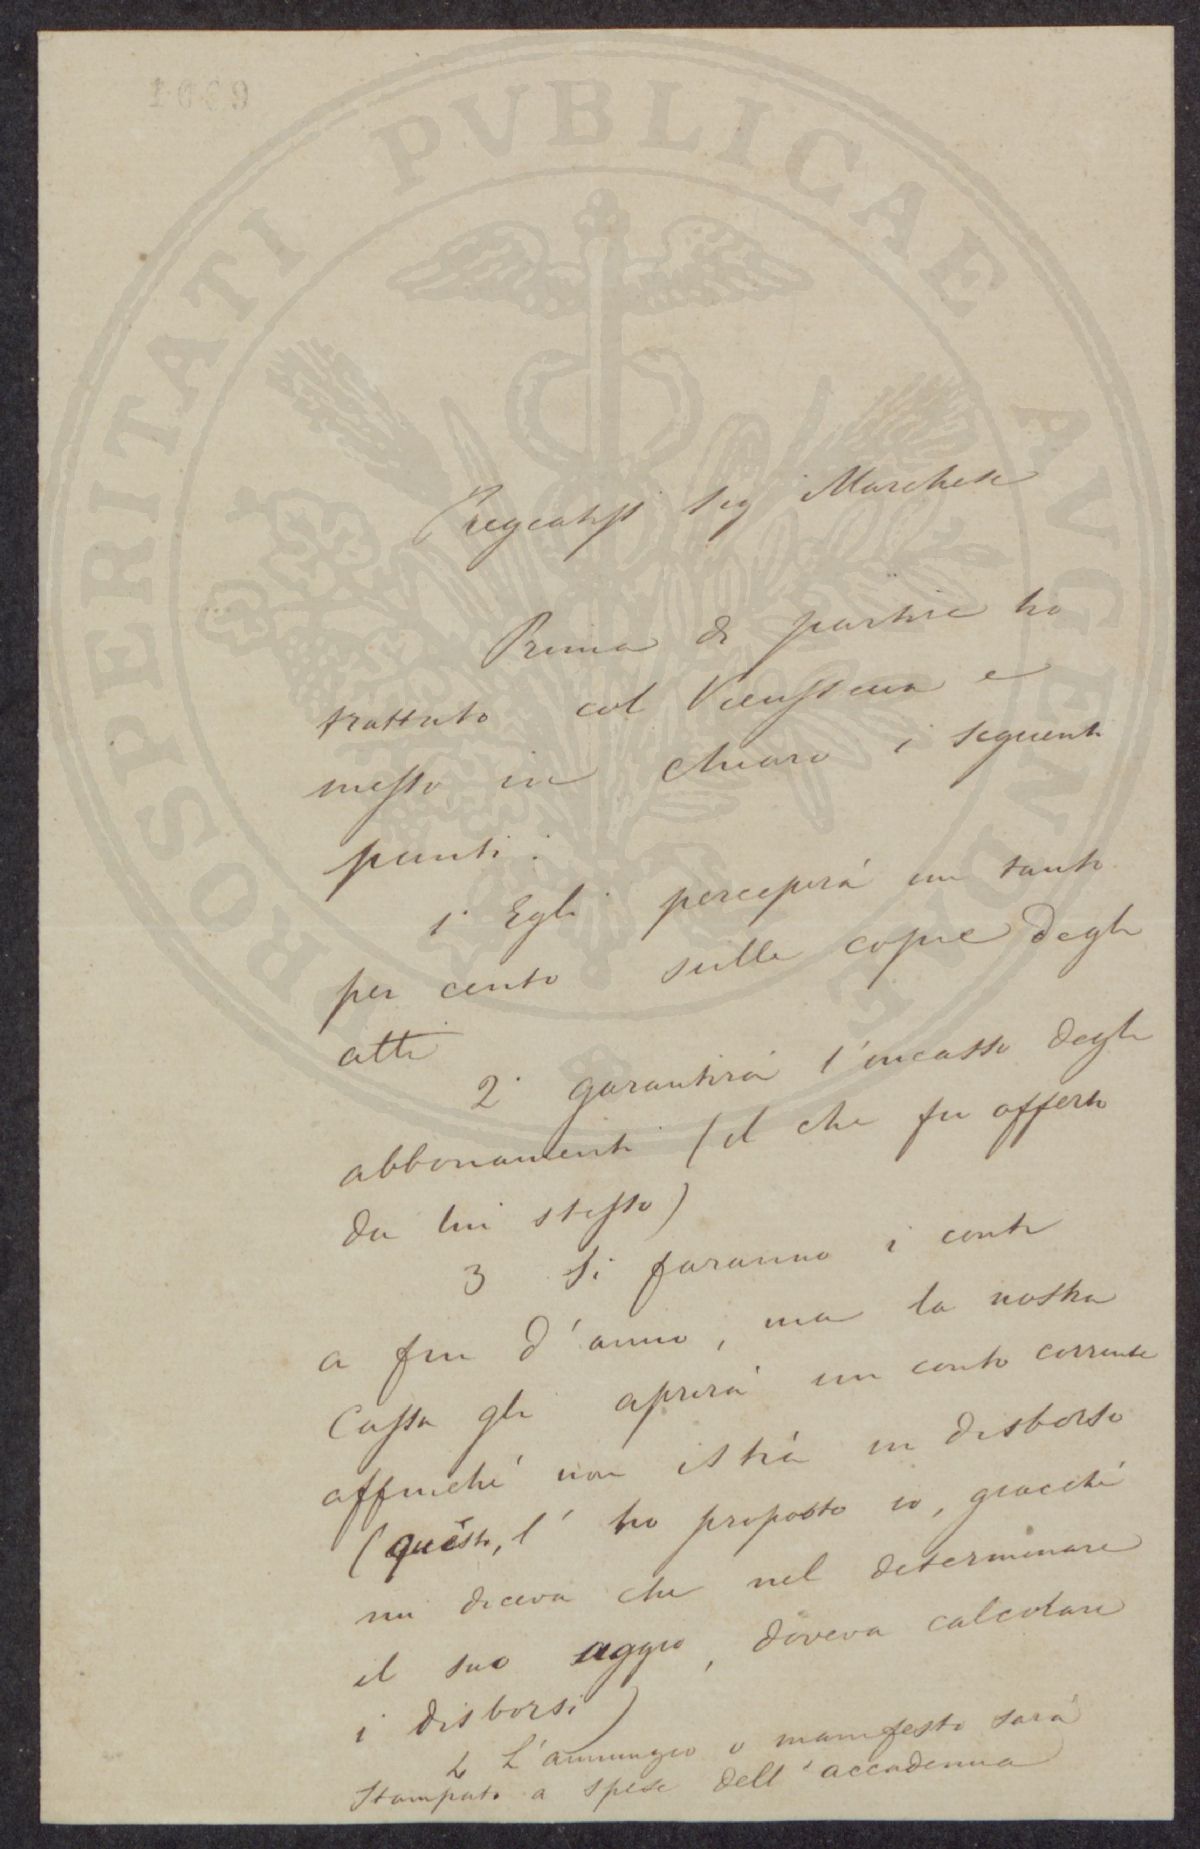 Pregiatiss Sig Marchese
Prima di partire ho
trattato col Vieusseux e
messo in chiaro i seguenti
punti:
1° Egli perceperà un tanto
per cento sulle copie degli
atti
2° garantirà l'incasso degli
abbonamenti (il che fu offerto
da lui stesso)
3 Si faranno i conti
a fin d'anno, ma la nostra
Cassa gli aprirà un conto corrente
affinché non istia in disborso
(questo, l'ho proposto io, giacché
mi diceva che nel determinare
il suo aggio, doveva calcolare
i disborsi)
4 L'annunzio o manifesto sarà
Stampato a spese dell'accademia
PROSPERITATI PVBLICAE AVGENDAE